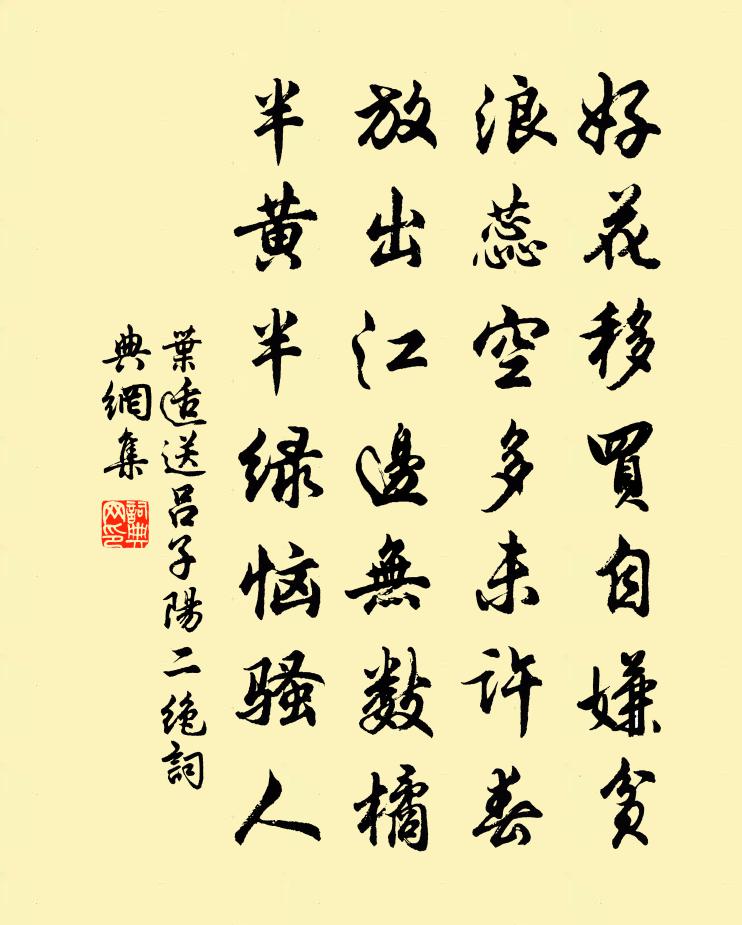 好花移買自嫌貧
浪蕊空多未許春
放出江邊無數橘
半黄半緑恼骚人
葉適送呂子陽二絶詞
典網集
詞典网印